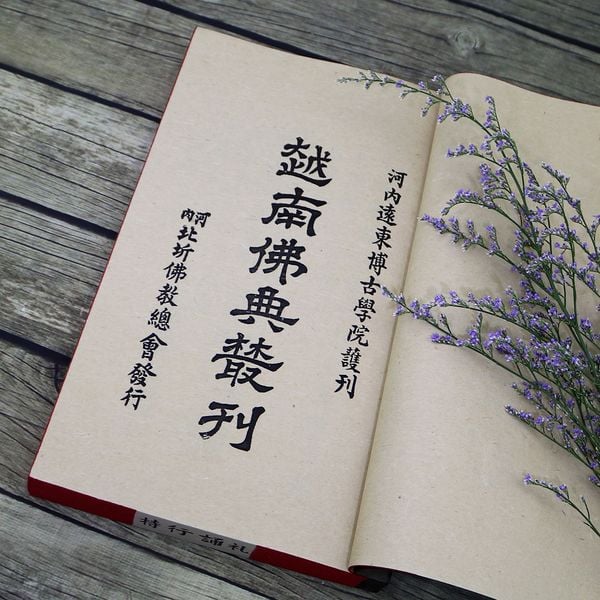 河內遠東博古學院護刊
越南佛典叢刊
河內北圻佛教總會發行
礼誦行持